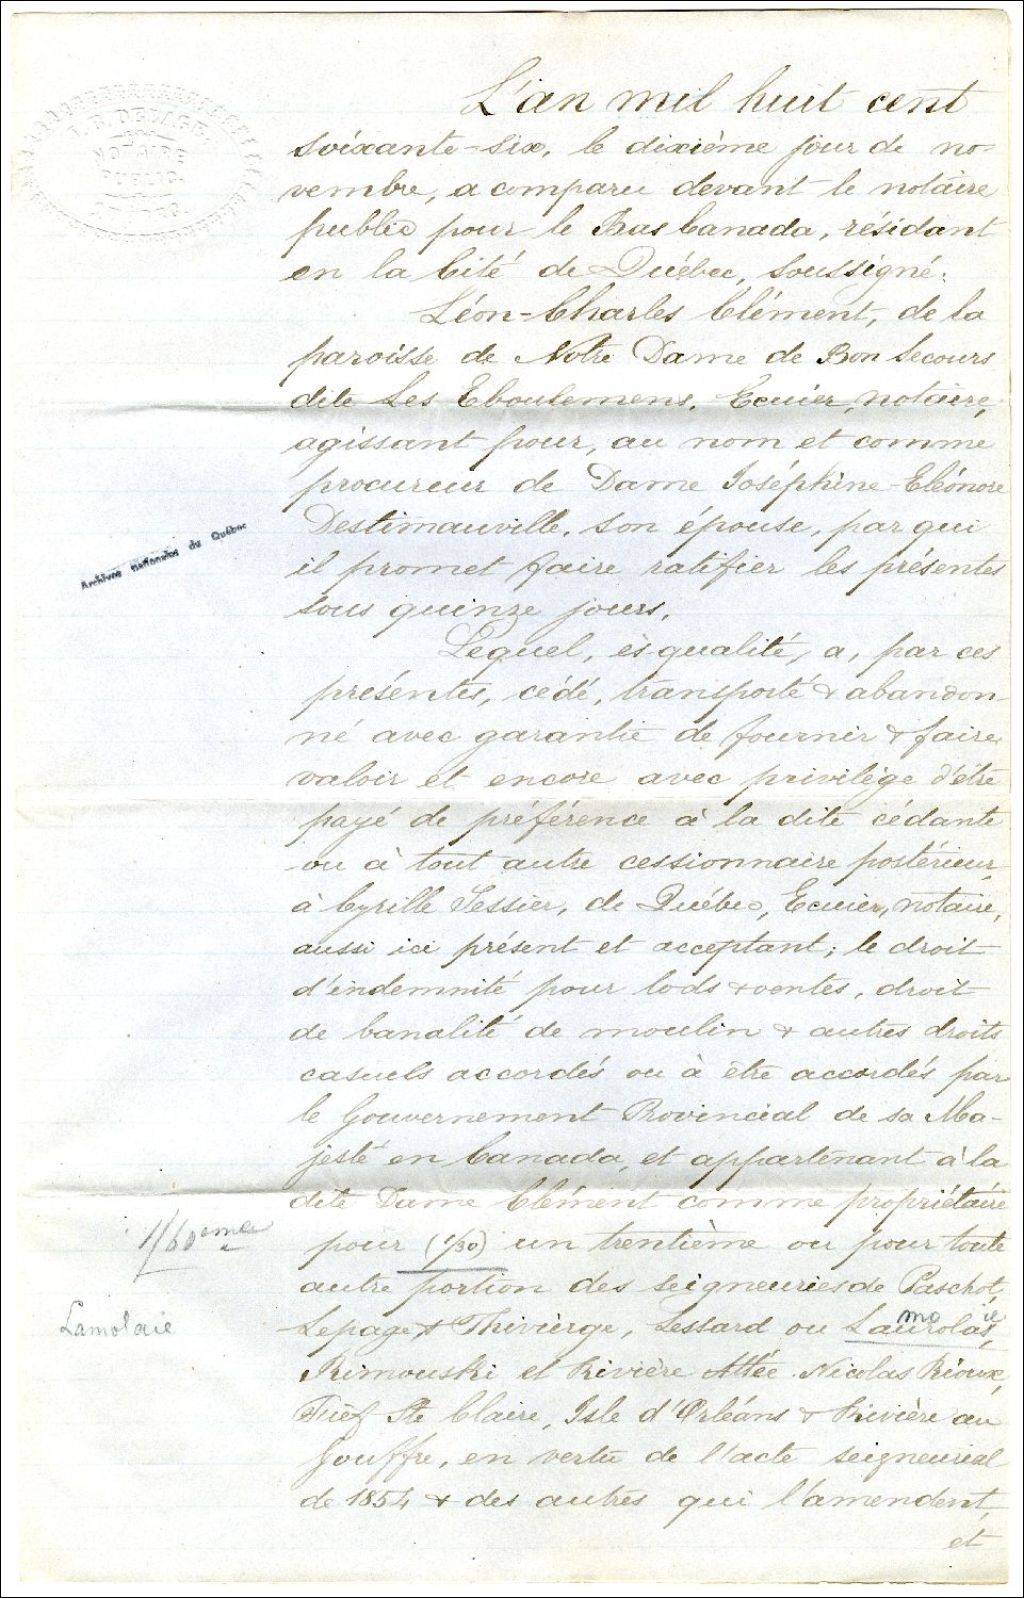 L'an mil huit cent
soixante-six, le dixième jour de no-
vembre, a comparu devant le notaire
public pour le Bas Canada, résidant
en la Cité de Québec, soussigné:
Léon-Charles Clément, de la
paroisse de Notre Dame de Bon Secours
dite Les Eboulemens, Ecuier, notaire,
agissant pour, au nom et comme
procureur de Dame Joséphine-Eléonore
Destimauville, son épouse, par qui
il promet faire ratifier les présentes
sous quinze jours.
Lequel, ès-qualité, a, par ces
présentes, cédé, transporté & abandon-
né avec garantie de fournir & faire
valoir et encore avec privilège d'être
payé de préférence à la dite cédante
ou à tout autre cessionnaire postérieur,
à Cyrille Tessier, de Québec, Ecuier, notaire,
aussi ici présent et acceptant; le droit
d'indemnité pour lods & ventes, droit
de banalité de moulin & autres droits
casuels accordés ou à être accordés par
le Gouvernement Provincial de sa Ma-
jesté en Canada, et appartenant à la
dite Dame Clément comme propriétaire
pour (1/30) un trentième ou pour toute
autre portion des seigneuries de Paschot,
Lepage & Thivièrge, Lessard ou Laurolas,
mo ie
Rimouski et Rivière Attée Nicolas Rioux,
Fief Ste Claire, Isle d'Orléans & Rivière au
Gouffre, en vertu de l'acte seigneurial
de 1854 & des autres qui l'amendent,
et
NOTAIRE
PUBLIC
Archives nationales du Québec
1/60eme
Lamolaie